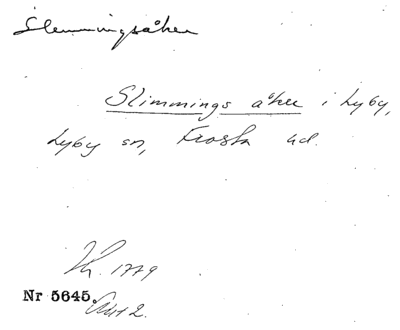 Slemmingsåker
Slimmings åker i Lyby,
Lyby sn, Frosta hd.
Nr 5645.